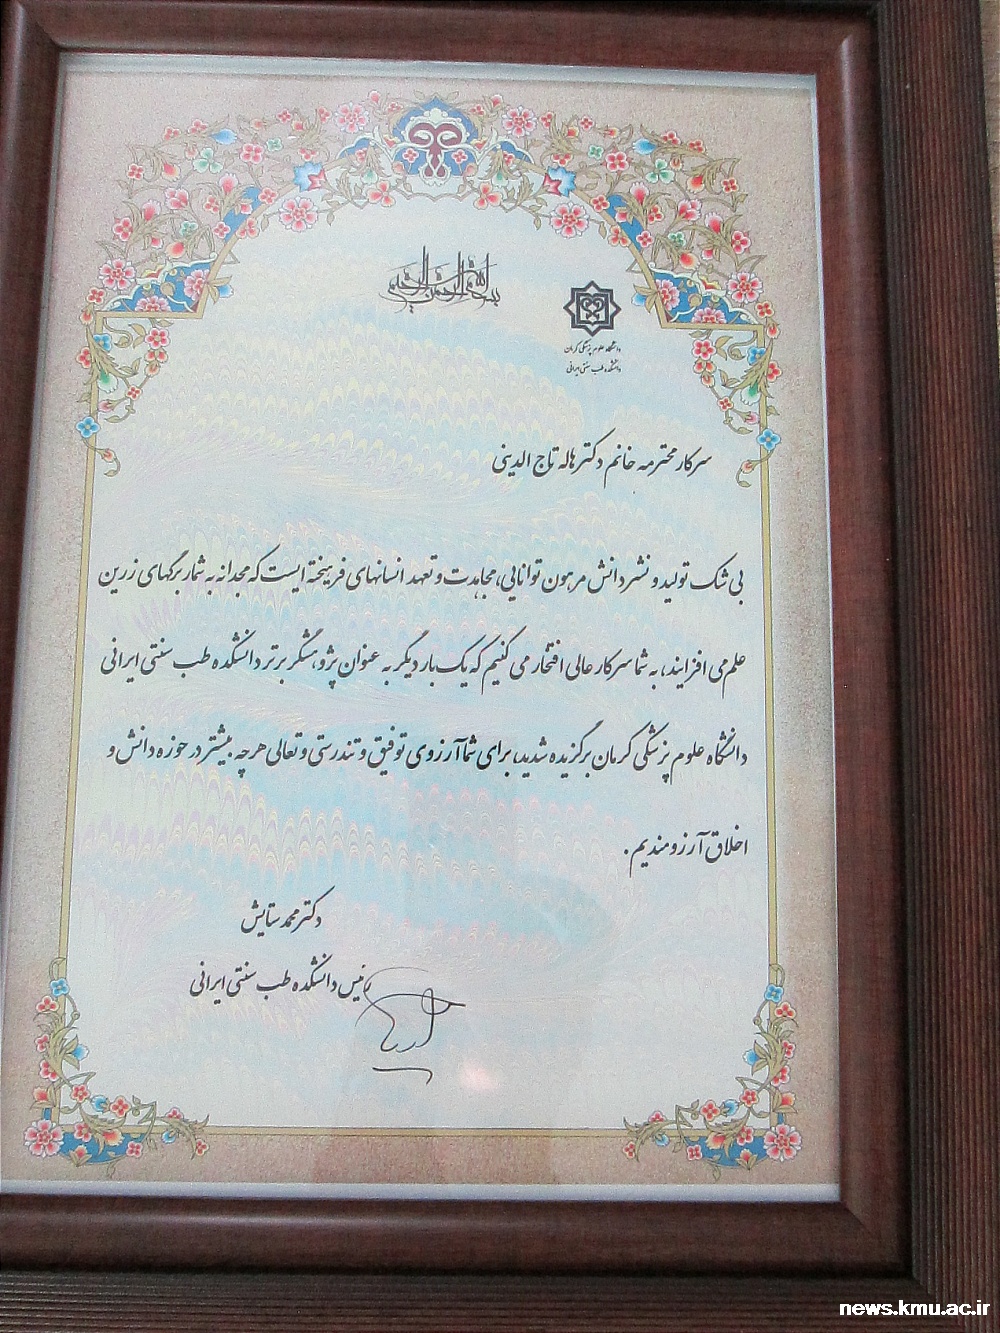 بسم الله الرحمن الرحیم
دانشگاه علوم پزشکی کرمان
دانشکده طب سنتی ایرانی
سرکار محترمه خانم دکتر هاله تاج الدینی
بی شک تولید و نشر دانش مرهون توانایی، مجاهدت و تعهد انسانهای فرهیخته ایست که مجدانه به شمار برگهای زرین
علم می افزایند، به شما سرکار عالی افتخار می کنیم که یک بار دیگر به عنوان پژوهشگر برتر دانشکده طب سنتی ایرانی
دانشگاه علوم پزشکی کرمان برگزیده شدید، برای شما آرزوی توفیق و تندرستی و تعالی هرچه بیشتر در حوزه دانش و
اخلاق آرزومندیم .
دکتر محمد ستایش
رئیس دانشکده طب سنتی ایرانی
news.kmu.ac.ir